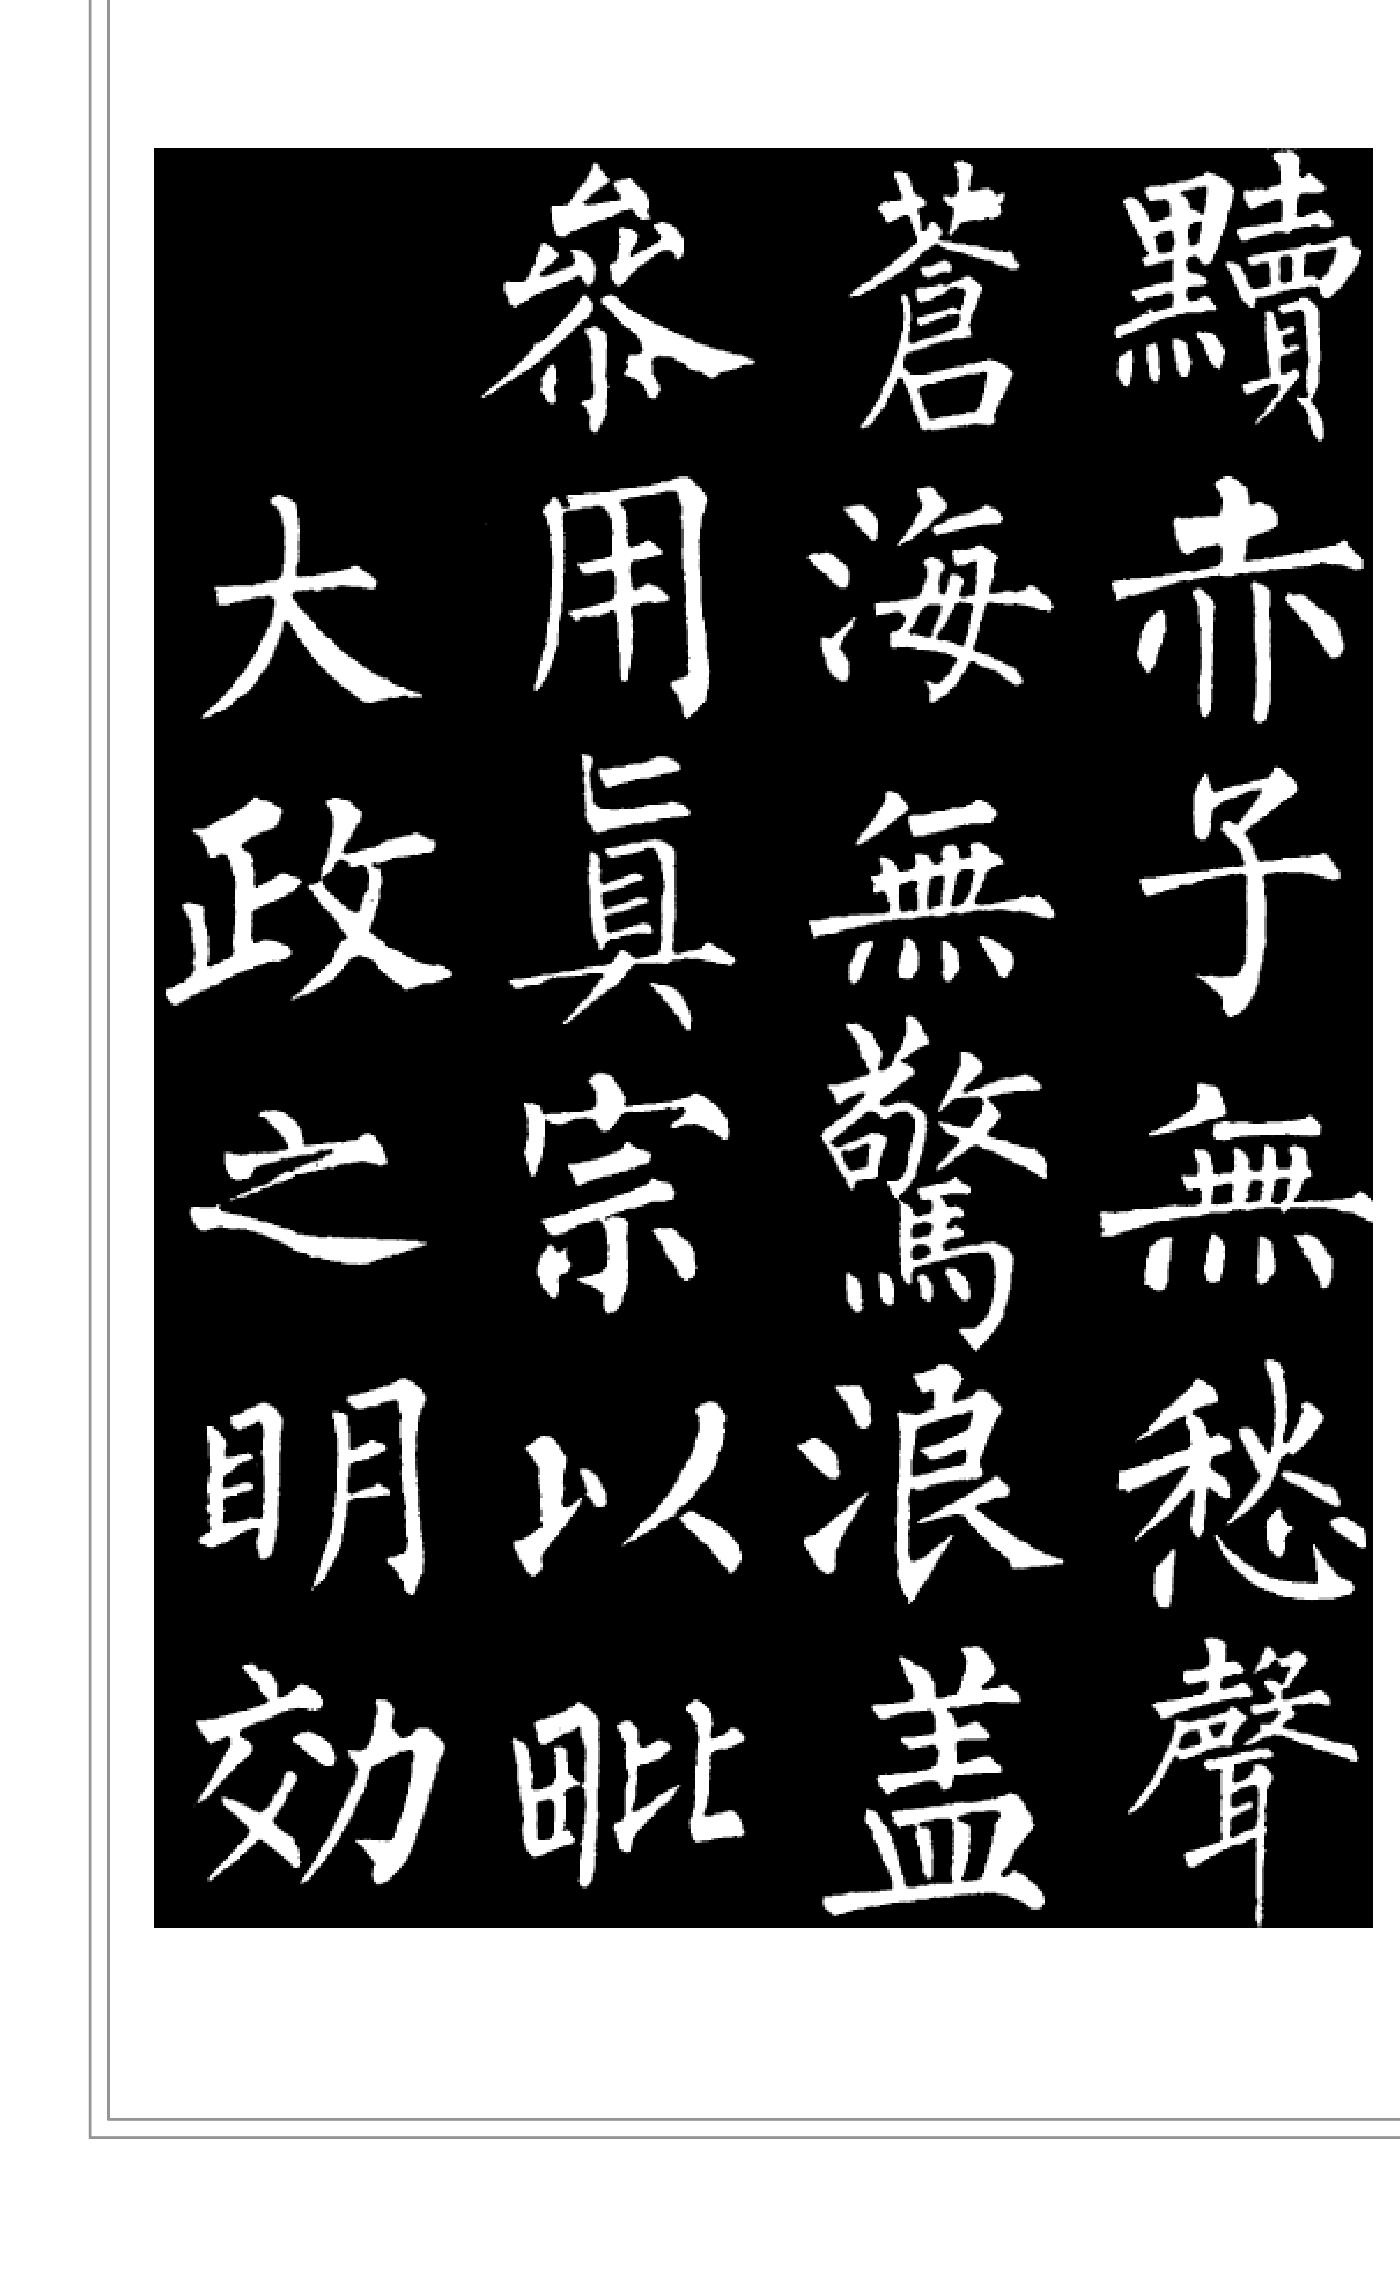 黷赤子無愁聲
蒼海無驚浪盖
叅用眞宗以毗
大政之眀効